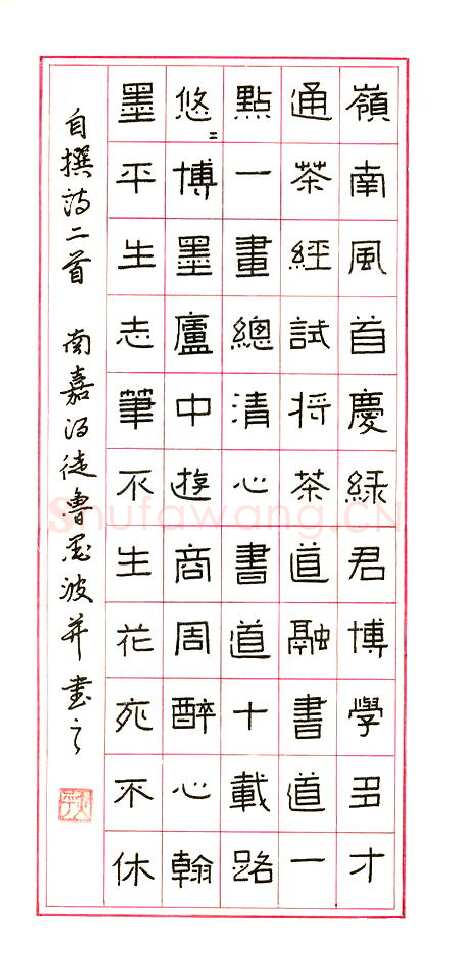 嶺南風首慶緑君博學多才
通茶經試将茶道融書道一
點一畫總清心書道十載路
悠〻博墨廬中遊商周醉心翰
墨平生志筆不生花死不休
自撰詩二首 南嘉 徒魯 波并書之
Shufawang.CN